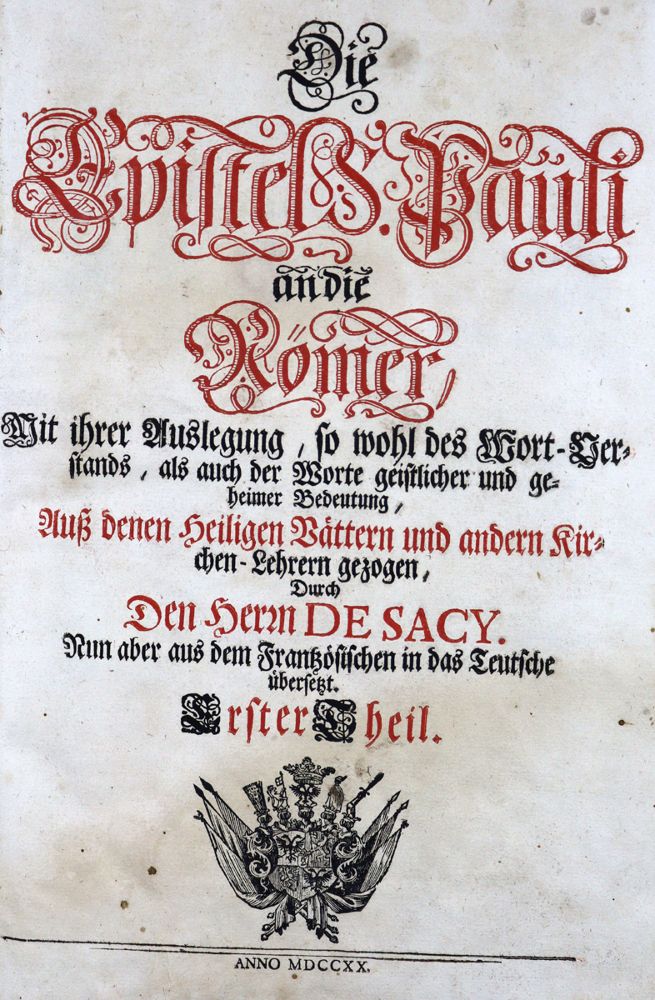 Die
Epistel S. Pauli
an die
Römer,
Mit ihrer Auslegung, so wohl des Wort-Ver-
stands, als auch der Worte geistlicher und ge-
heimer Bedeutung,
Auß denen Heiligen Vättern und andern Kir-
chen-Lehrern gezogen,
Durch
Den Herrn DE SACY.
Nun aber aus dem Frantzösischen in das Teutsche
übersetzt.
Erster Theil.
ANNO MDCCXX.